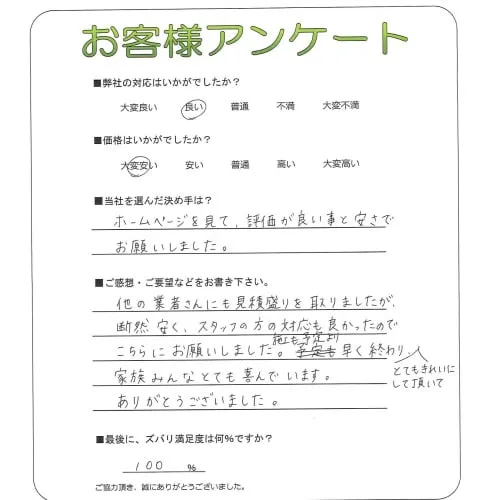 お客様アンケート
■弊社の対応はいかがでしたか？
大変良い 良い 普通 不満 大変不満
■価格はいかがでしたか？
大変安い 安い 普通 高い 大変高い
■当社を選んだ決め手は？
ホームページを見て、評価が良い事と安さで
お願いしました。
■ご感想・ご要望などをお書き下さい。
他の業者さんにも見積盛りを取りましたが、
断然安く、スタッフの方の対応も良かったので
こちらにお願いしました。予定より早く終わり、
とてもきれいに
して頂いて
家族みんなとても喜んでいます。
ありがとうございました。
■最後に、ズバリ満足度は何%ですか？
100 %
ご協力頂き、誠にありがとうございました。